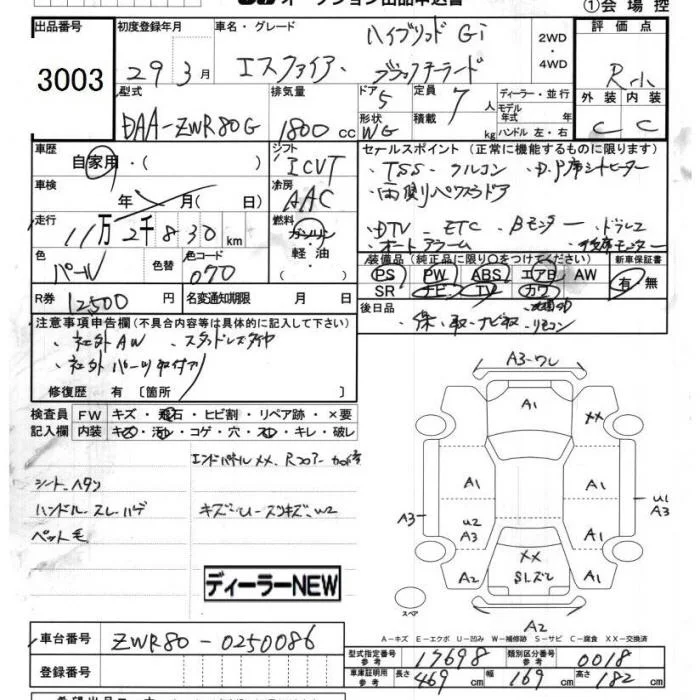 オークション出品申込書
①会場控
出品番号 初度登録年月 車名・グレード 評価点
3003 29年3月 エスクァイア ハイブリッド Gi ブラックテーラード 2WD・4WD R小
型式 排気量 ドア 5 定員 7人 ディーラー・並行 外装 内装
DAA-ZWR80G 1800cc 形状 WG 積載 kg モデル年式 年式 ハンドル 左・右 C C
車歴 シフト セールスポイント(正常に機能するものに限ります)
自家用・( ) ICVT ・TSS・クルコン・D.P席シートヒーター
車検 冷房 ・両側パワスラドア
年 月( 日) AAC
走行 燃料 ・DTV・ETC・Bモニター・ドラレコ
11万2千830km ガソリン・軽油・ ・オートアラーム ・後席モニター
色 色替 色コード 装備品(純正品に限り○をつけてください) 新車保証書
パール 070 PS PW ABS エアB AW 有・無
SR ナビ TV カワ
R券 12500円 名変通知期限 月 日 後日品
・保・取・ナビ取・リモコン
注意事項申告欄(不具合内容等は具体的に記入して下さい)
・社外AW ・スタッドレスタイヤ
・社外パーツ取付有り
修復歴 有〔箇所 〕
検査員 FW キズ・飛石・ヒビ割・リペア跡・×要
記入欄 内装 キズ・汚れ・コゲ・穴・スレ・キレ・破レ
エンドパネルXX、Rフロアー
シート、ヘタリ
ハンドル、スレ、ハゲ
ペット毛
ディーラーNEW
A3-ワレ
A1 XX
A1 A1
A3 U2 A3 A1 U1 A3
XX
A2 SLズレ A1
スペア
A2
A-キズ E-エクボ U-凹み W-補修跡 S-サビ C-腐食 XX-交換済
車台番号 ZWR80-0250086
型式指定番号 参考 17698 類別区分番号 参考 0018
登録番号
車庫証明用 参考 長さ 469cm 幅 169cm 高さ 182cm